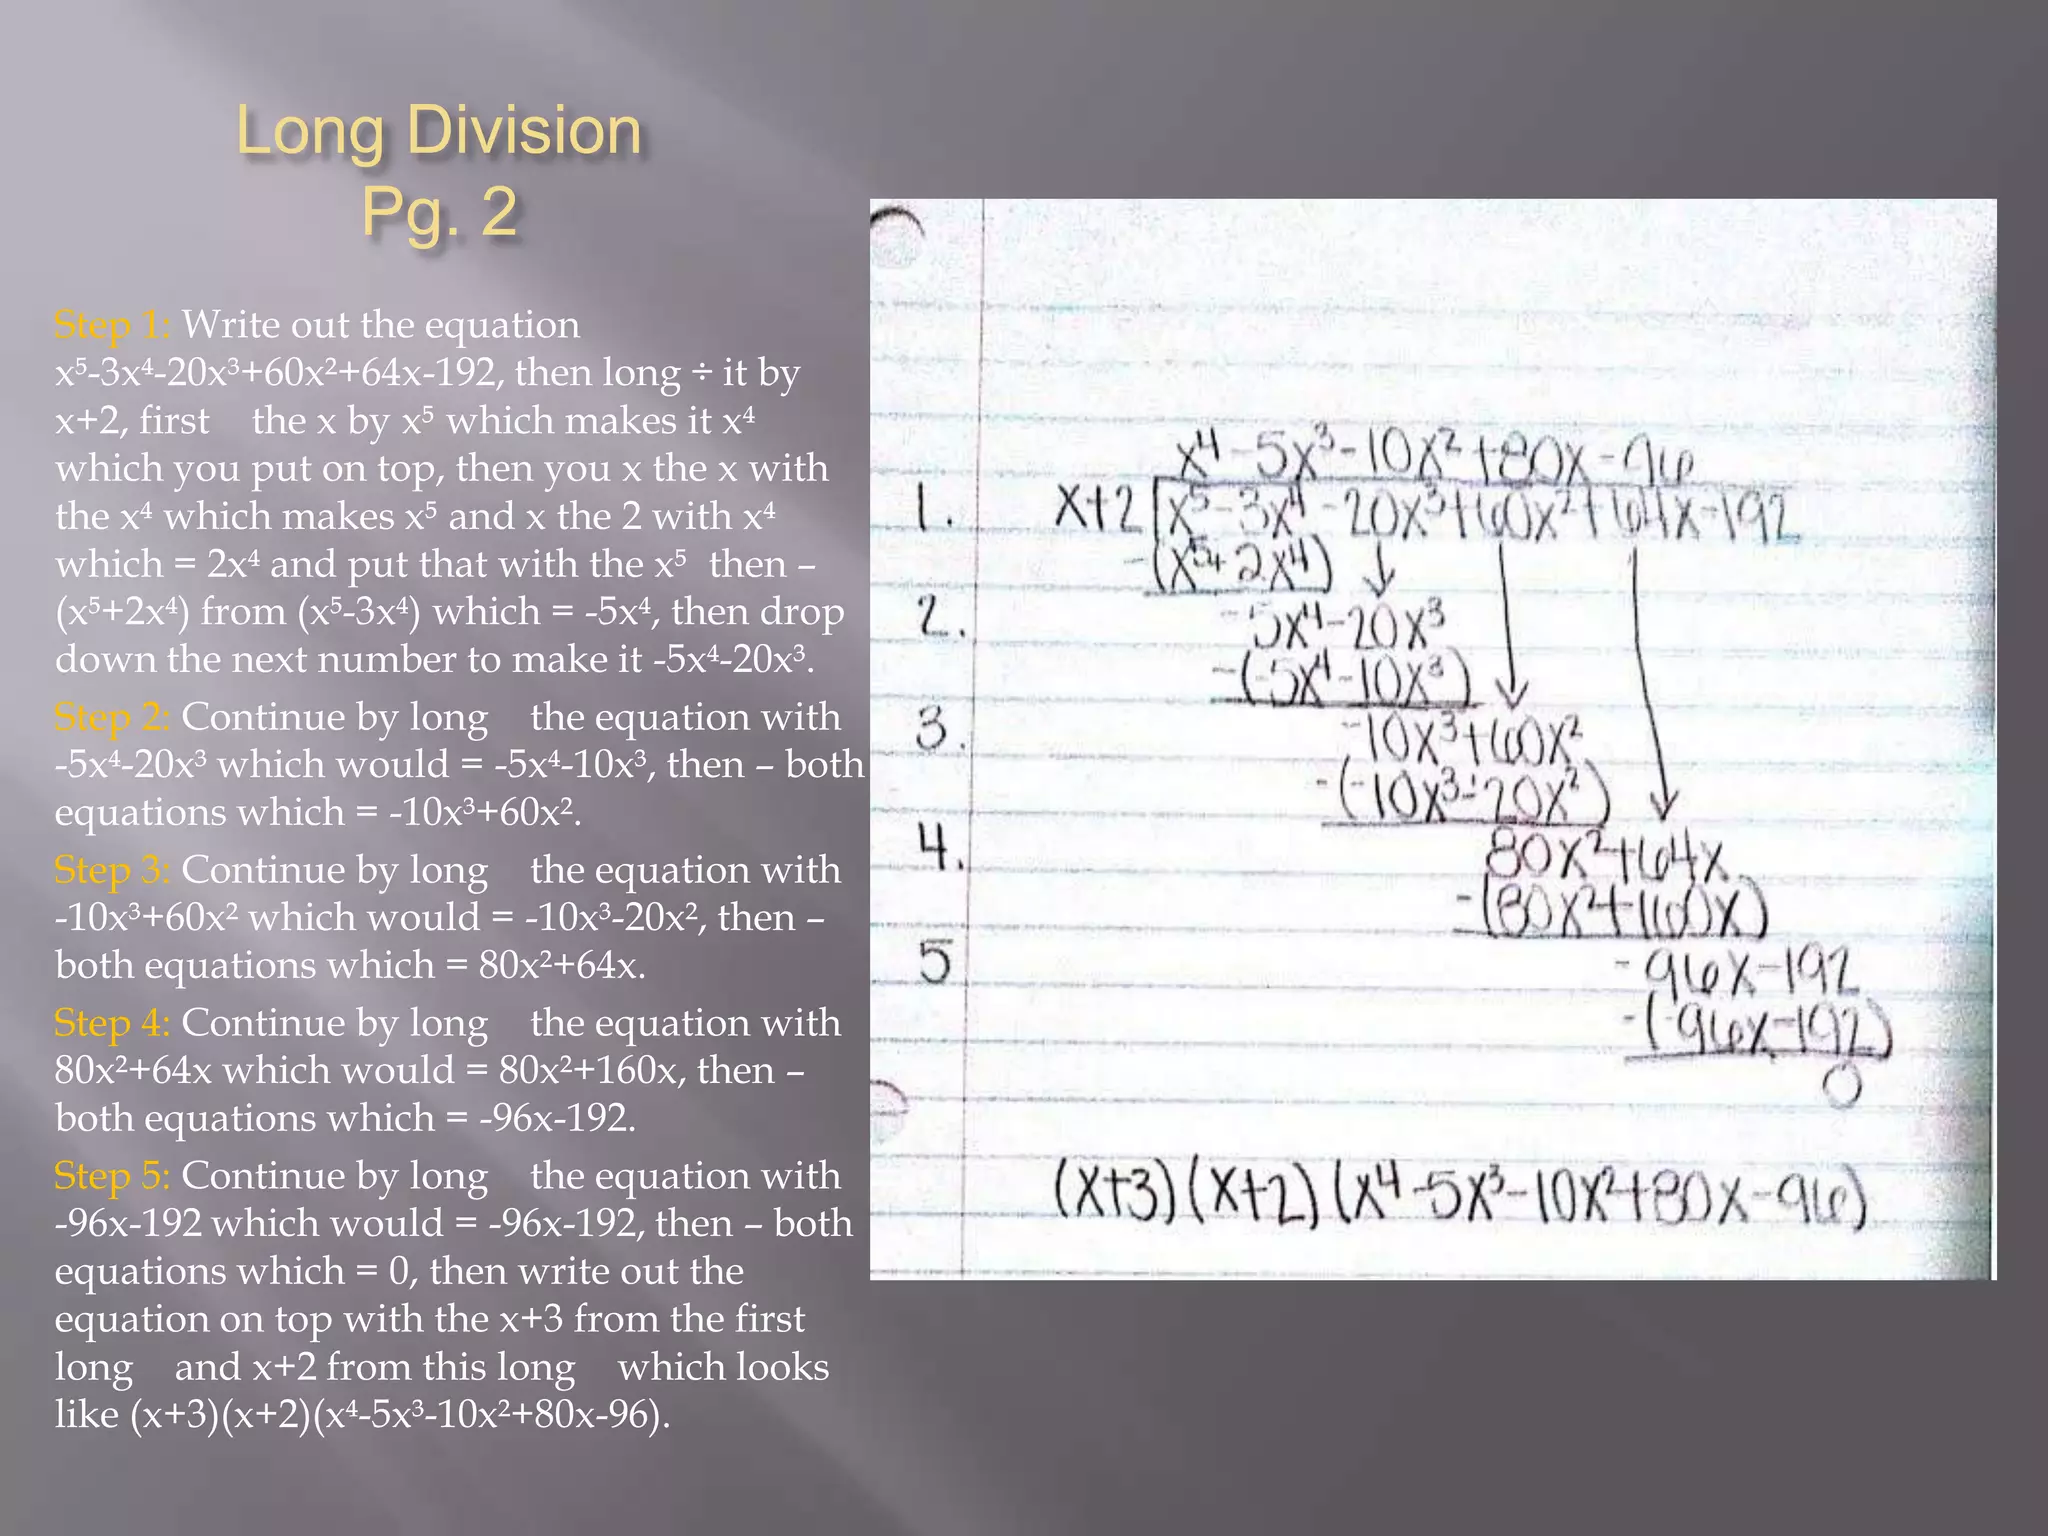 Long Division
Pg. 2
Step 1: Write out the equation
x⁵-3x⁴-20x³+60x²+64x-192, then long ÷ it by
x+2, first the x by x⁵ which makes it x⁴
which you put on top, then you x the x with
the x⁴ which makes x⁵ and x the 2 with x⁴
which = 2x⁴ and put that with the x⁵ then –
(x⁵+2x⁴) from (x⁵-3x⁴) which = -5x⁴, then drop
down the next number to make it -5x⁴-20x³.
Step 2: Continue by long the equation with
-5x⁴-20x³ which would = -5x⁴-10x³, then – both
equations which = -10x³+60x².
Step 3: Continue by long the equation with
-10x³+60x² which would = -10x³-20x², then –
both equations which = 80x²+64x.
Step 4: Continue by long the equation with
80x²+64x which would = 80x²+160x, then –
both equations which = -96x-192.
Step 5: Continue by long the equation with
-96x-192 which would = -96x-192, then – both
equations which = 0, then write out the
equation on top with the x+3 from the first
long and x+2 from this long which looks
like (x+3)(x+2)(x⁴-5x³-10x²+80x-96).
x⁴-5x³-10x²+80x-96
1. x+2 x⁵-3x⁴-20x³+60x²+64x-192
-(x⁵+2x⁴)
2. -5x⁴-20x³
-(-5x⁴-10x³)
3. -10x³+60x²
-(-10x³-20x²)
4. 80x²+64x
-(80x²+160x)
5 -96x-192
-(-96x-192)
0
(x+3)(x+2)(x⁴-5x³-10x²+80x-96)